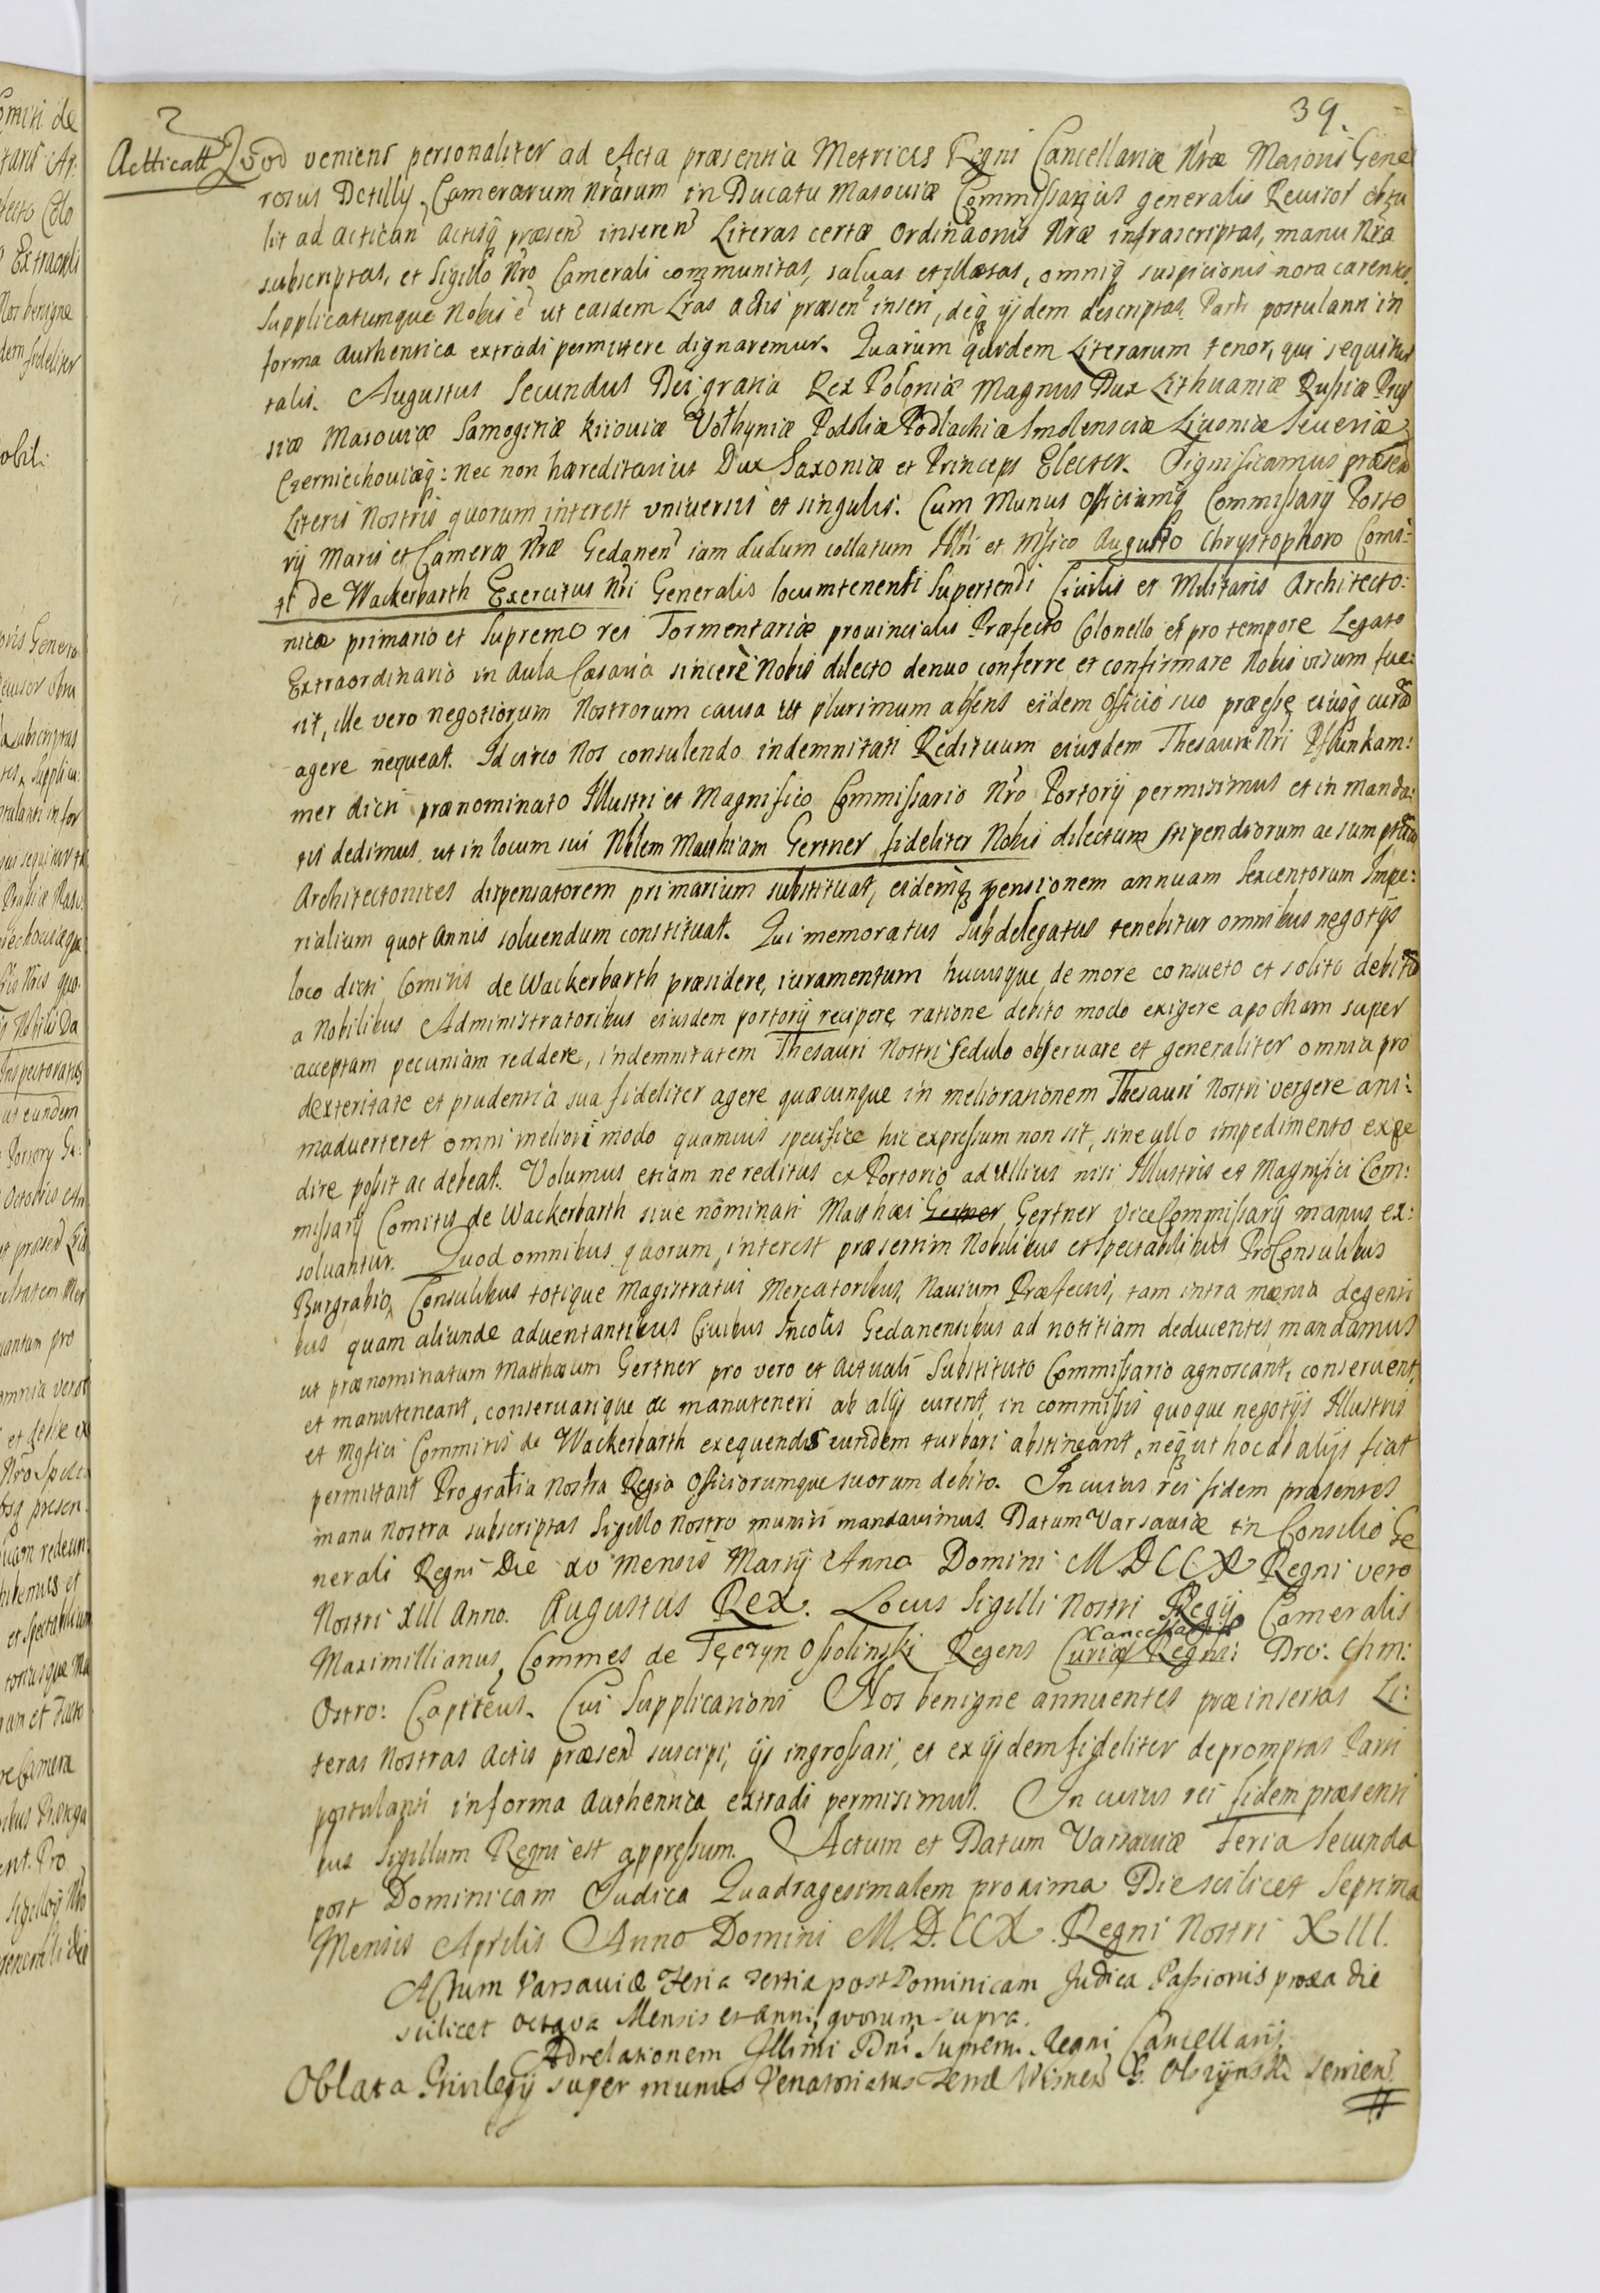 39.
Actticatt Quod veniens personaliter ad Acta præsentia Metrices Regni Cancellariæ Nræ Maioris Gene
rosus Detilly, Camerarum Nrarum in Ducatu Masoviæ Commissarius generalis Revisor obtu
lit ad actican actisq præsen inseren Literas certæ ordinaonis Nræ infrascriptas, manu Nra
subscriptas, et Sigillo Nro Camerali communitas, salvas et illæsas, omniq suspicionis nota carentes.
Supplicatumque Nobis e ut easdem Lras actis præsen inseri, deq ijsdem descriptas Parti postulanti in
forma authentica extradi permittere dignaremur. Quarum quidem Literarum tenor, qui sequitur
talis. Augustus Secundus Dei gratia Rex Poloniæ Magnus Dux Lithuaniæ Russiæ Prus
siæ Masoviæ Samogitiæ Kiioviæ Volhyniæ Podoliæ Podlachiæ Smolensciæ Livoniæ Severiæ
Czerniechoviæq: nec non hæreditarius Dux Saxoniæ et Princeps Elector. Significamus præsen
Literis Nostris quorum interest universis et singulis. Cum Munus Officiumq Commissarij Porto
rij Maris et Cameræ Nræ Gedanen iam dudum collatum Illri et Mfico Augusto Chrystophoro Comi:
ti de Wackerbarth Exercitus Nri Generalis locumtenenti Supertendi Civilis et Militaris Architecto:
nicæ primario et Supremo rei Tormentariæ provincialis Præfecto Colonello et pro tempore Legato
Extraordinario in Aula Cæsarea sincerè Nobis dilecto denuo conferre et confirmare Nobis visum fue:
rit, ille vero negotiorum Nostrorum causa ut plurimum absens eidem Officio suo præesse eiusq curam
agere nequeat. Idcirco Nos consulendo indemnitati Redituum eiusdem Thesauri Nri Pffunkam:
mer dicti prænominato Illustri et Magnifico Commissario Nro Portorij permisimus et in manda:
tis dedimus ut in locum sui Nblem Matthiam Gertner fideliter Nobis dilectum stipendiorum ac sumptuum
Architectonices dispensatorem primarium substituat, eidemq pensionem annuam Sexcentorum Impe:
rialium quot Annis solvendum constituat. Qui memoratus Subdelegatus tenebitur omnibus negotijs
loco dicti Comitis de Wackerbarth præsidere, iuramentum hucusque de more consueto et solito debito
a Nobilibus Administratoribus eiusdem portorij recipere, ratione debito modo exigere apocham super
acceptam pecuniam reddere, indemnitatem Thesauri Nostri sedulo observare et generaliter omnia pro
dexteritate et prudentia sua fideliter agere quæcunque in meliorationem Thesauri Nostri vergere ani:
madverteret omni meliori modo quamvis specifice hic expressum non sit, sine ullo impedimento expe
dire possit ac debeat. Volumus etiam ne reditus ex Portorio ad ullius nisi Illustris et Magnifici Com:
missarij Comitis de Wackerbarth sive nominati Matthæi Gertner Gertner ViceCommissarij manus ex:
solvantur. Quod omnibus quorum interest præsertim Nobilibus et Spectabilibus ProConsulibus
Burgrabio, Consulibus totique Magistratui Mercatoribus, Navium Præfectis, tam intra mœnia degenti
bus quam aliunde adventantibus Civibus Incolis Gedanensibus ad notitiam deducentes mandamus
ut prænominatum Matthæum Gertner pro vero et actuali Substituto Commissario agnoscant, conservent,
et manuteneant, conservarique ac manuteneri ab alijs curent, in commissis quoque negotijs Illustris
et Mgfici Commitis de Wackerbarth exequendis eundem turbari abstineant, neq ut hoc ab alijs fiat
permittant Pro gratia Nostra Regia Officiorumque suorum debito. In cuius rei fidem præsentes
manu Nostra subscriptas Sigillo Nostro muniri mandavimus. Datum Varsaviæ in Consilio Ge
nerali Regni Die xv Mensis Martij Anno Domini MDCCX Regni vero
Nostri XIII Anno. Augustus Rex. Locus Sigilli Nostri Regij Cameralis
Maximillianus Commes de Tęczyn Ossolinski Regens Curiæ Cancellariæ Regni: Dro: Chm:
Ostro: Capiteus. Cui Supplicationi Nos benigne annuentes præinsertas Li:
teras Nostras Actis præsen suscipi, ijs ingrossari, et ex ijsdem fideliter depromptas Parti
postulanti in forma authentica extradi permisimus. In cuius rei fidem præsenti
bus Sigillum Regni est appressum. Actum et Datum Varsaviæ Feria Secunda
post Dominicam Judica Quadragesimalem proxima Die scilicet Septima
Mensis Aprilis Anno Domini M.D.CCX. Regni Nostri XIII.
Actum Varsaviæ Feria tertia post Dominicam Judica Passionis proxa die
scilicet octava Mensis et anni quorum supra.
Ad relationem Illimi Dni Supremi Regni Cancellarij.
Oblata Privilegij super munus Venatoriatus Terræ Wisnen G. Olszynski servien